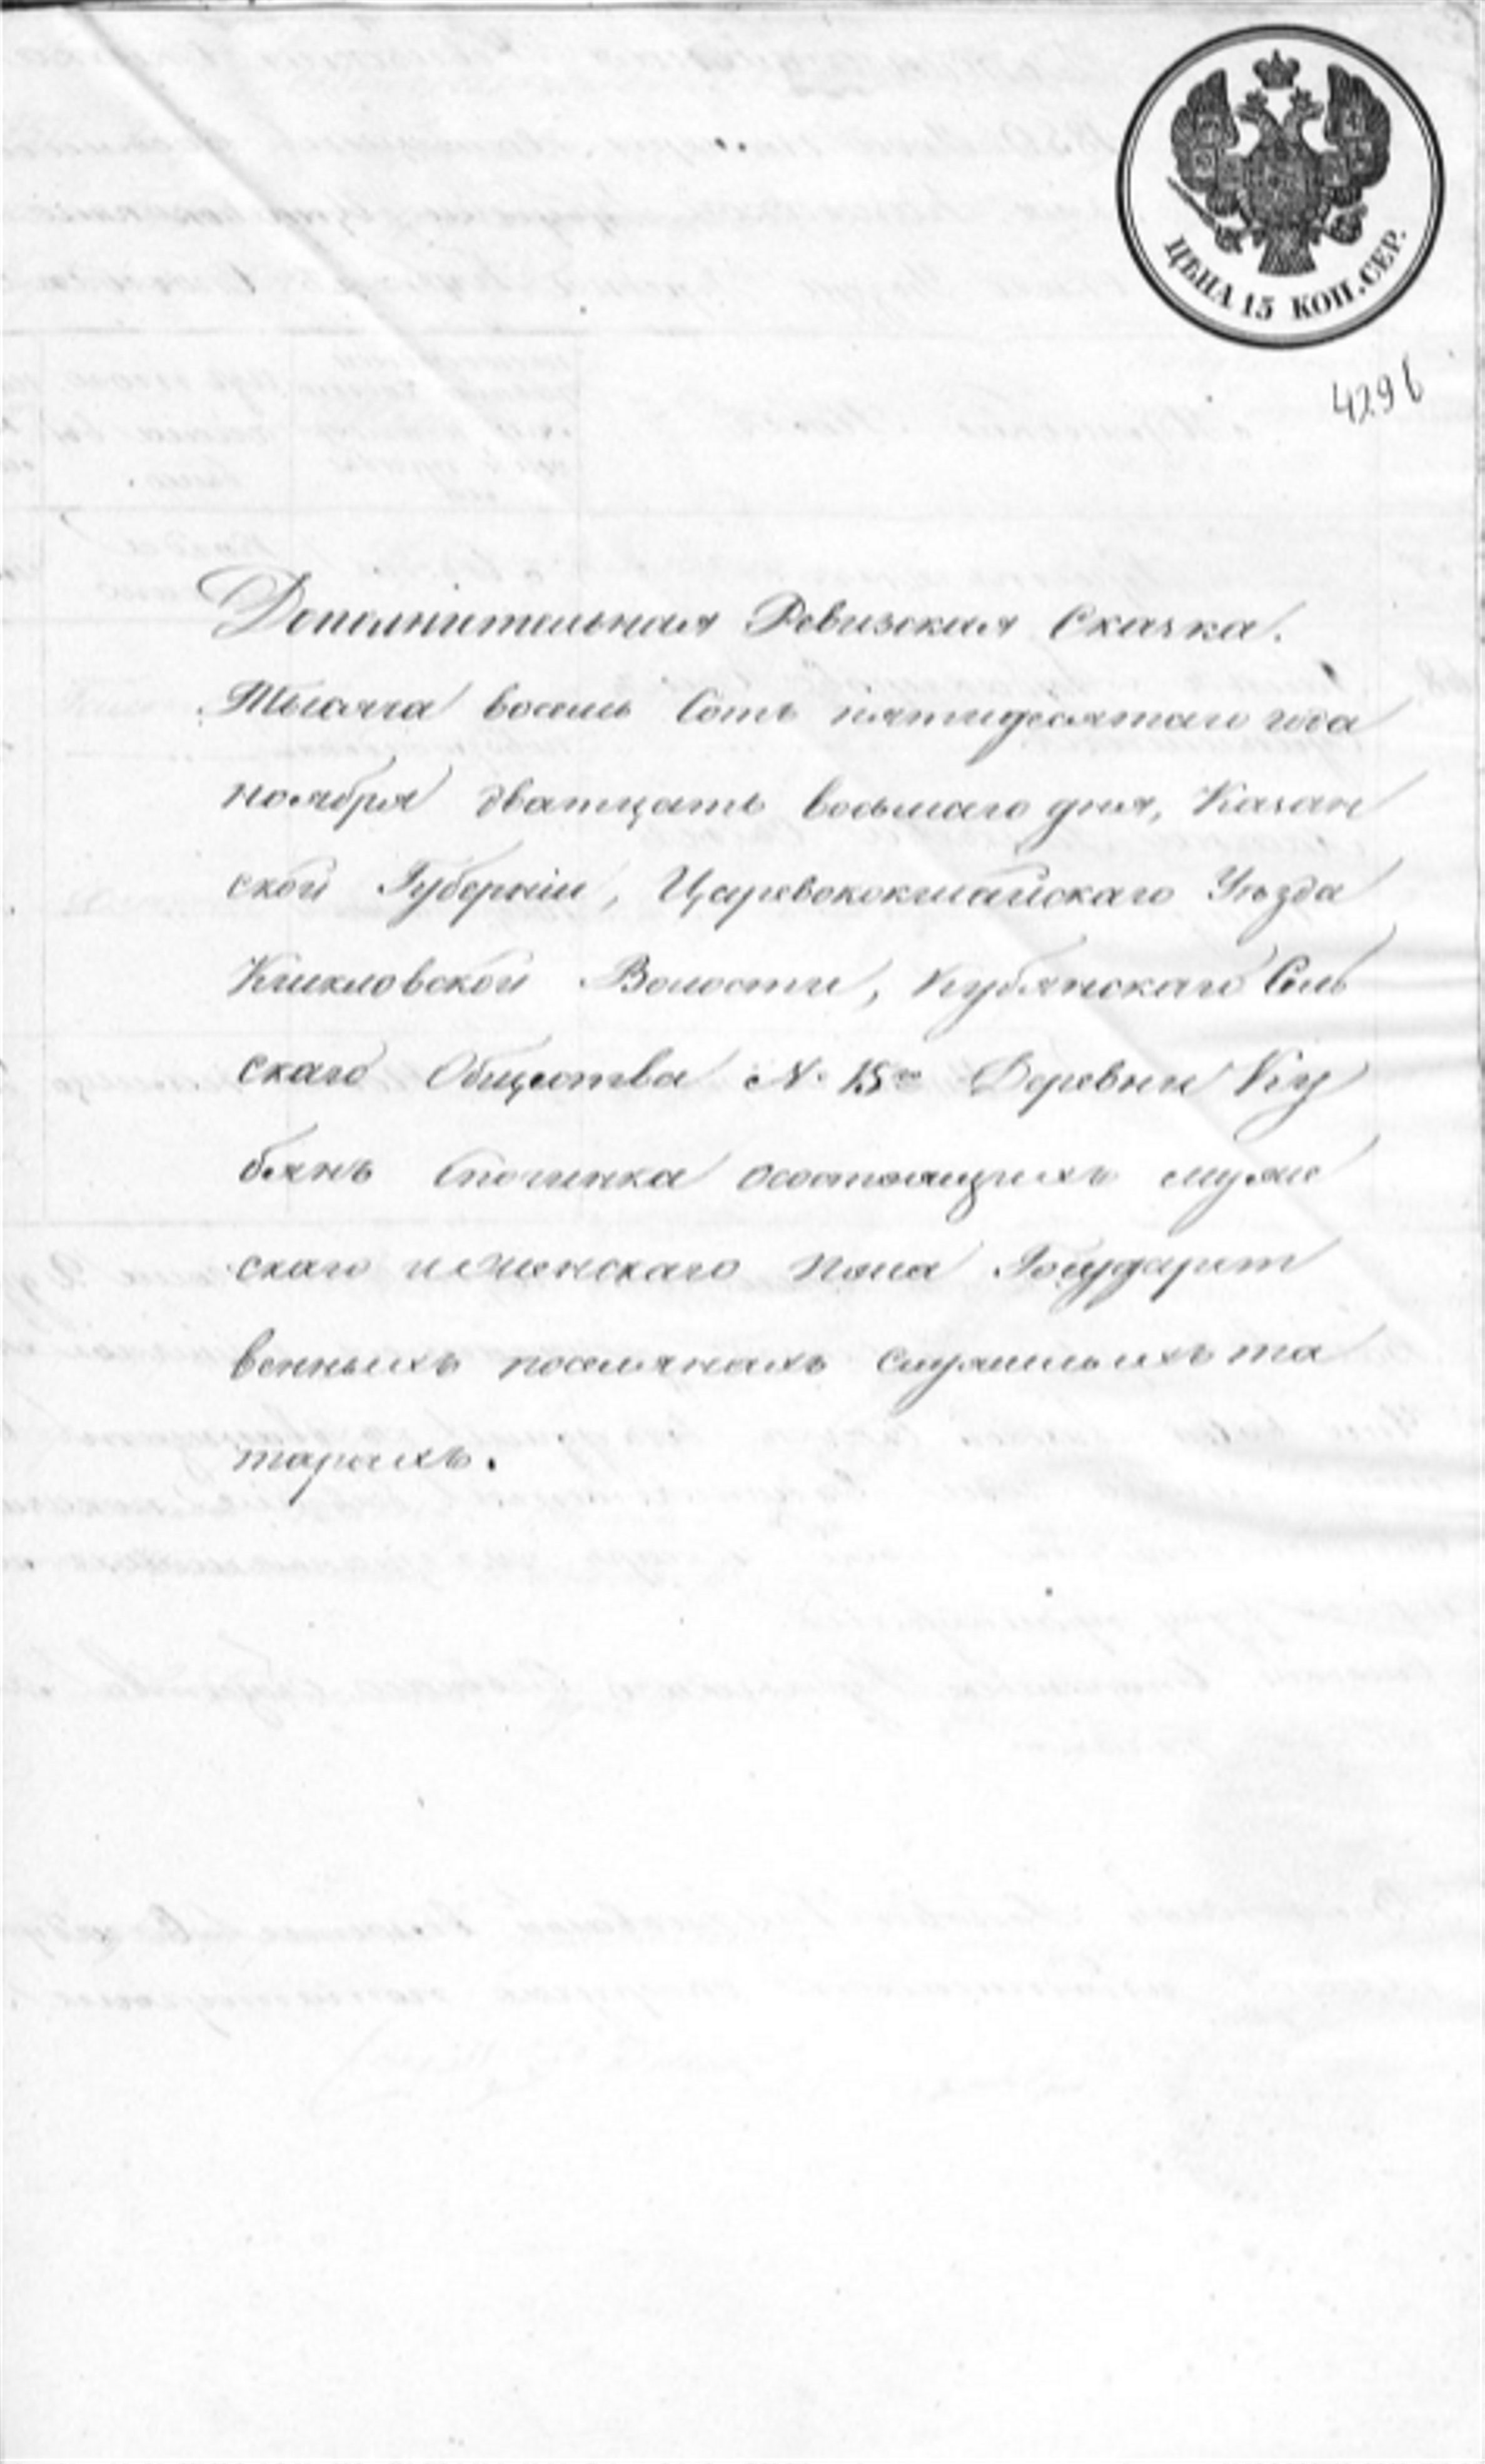 ЦѢНА 15 КОП. СЕР.
4296
Дополнительная Ревизская Сказка.
Тысяча восемь Сотъ пятидесятаго года
ноября дватцать восьмаго дня, Казан
ской Губерніи, Царевококшайскаго Уѣзда
Кшкловской Волости, Кубянскаго Сель
скаго Общества № 15го Деревни Ку
бянъ Спочинка осостоящихъ муже
скаго и женскаго пола Государст
венныхъ поселянахъ служилыхъ та
тарахъ.